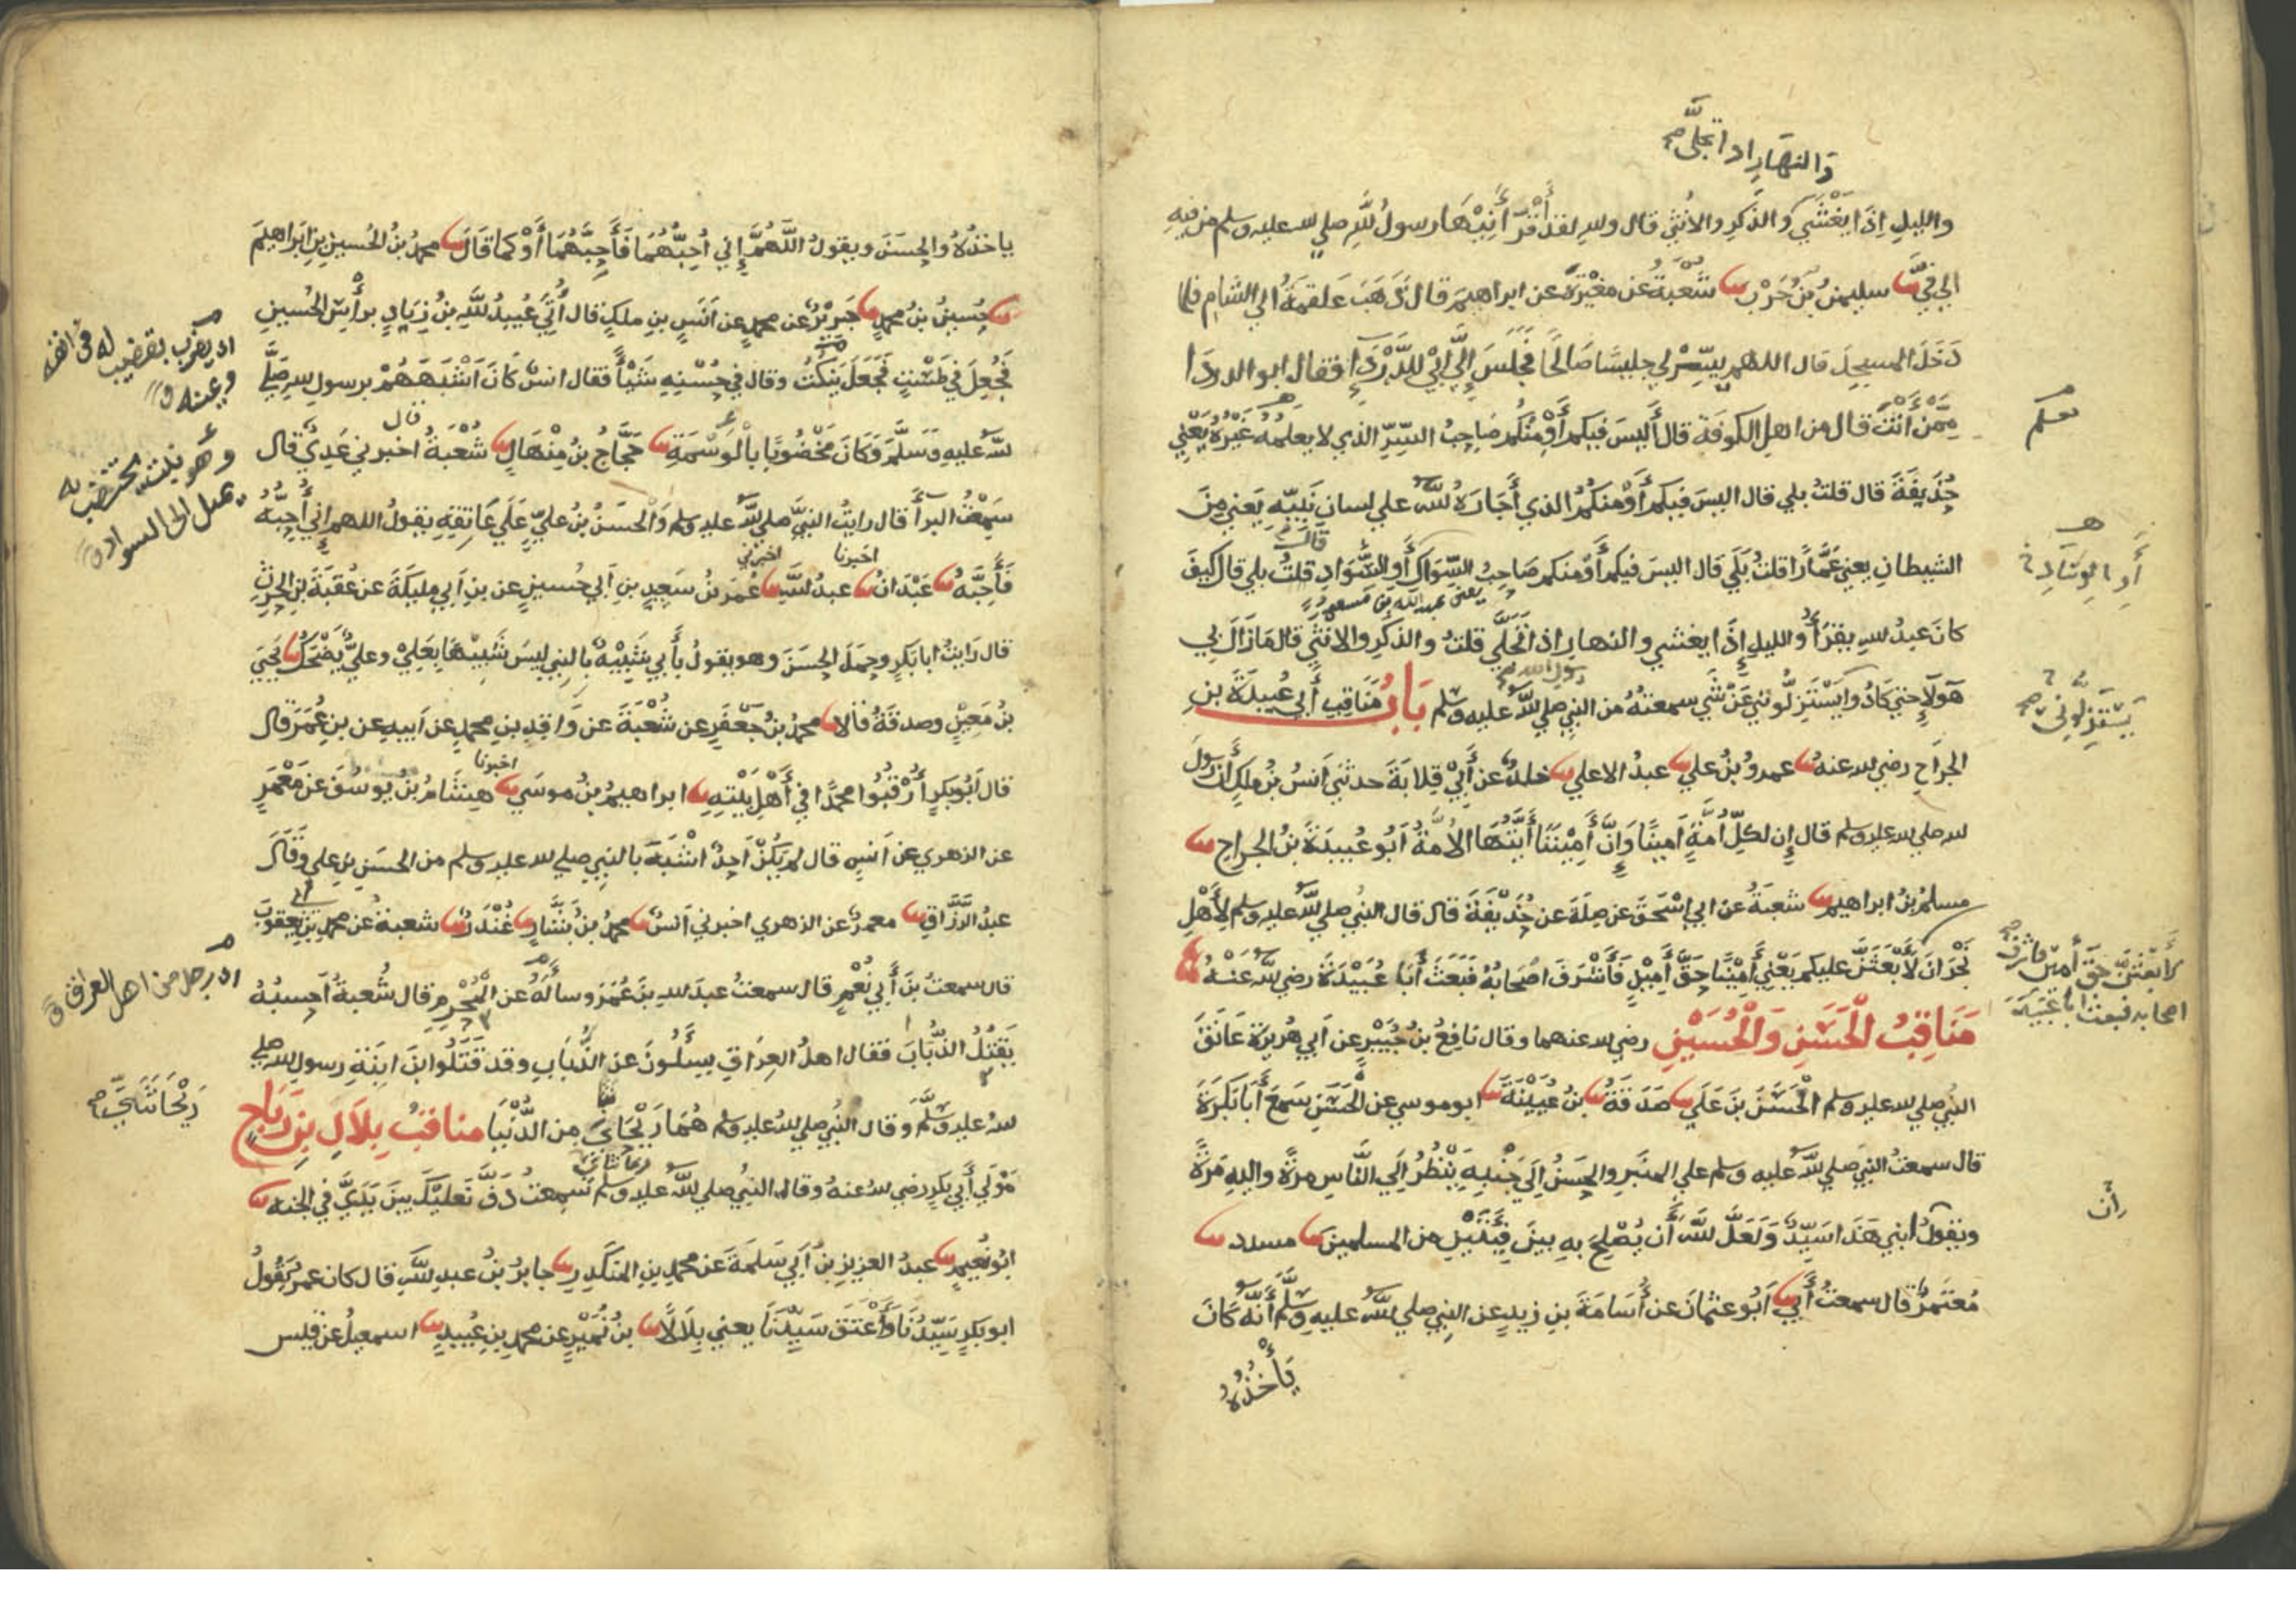 والنهار اذا تجلى صح
والليلِ اِذَا يَغْشَي والذكرِ والأُنثي قال واللهِ لقد أَقْرَأَنِيْهَا رسولُ اللهِ صلي الله عليه وسلم من فِيهِ
الي فِيَّ ثنا سليمنُ بنُ حَرْبٍ ثنا شُعْبَةُ عن مغيْرةَ عن ابراهيمَ قال ذَهَبَ عَلقمةُ الي الشامِ فلما
دَخَلَ المسجِدَ قال اللهم يسِّرْ لي جليسًا صَالحًا فجَلَسَ اِلَي اَبِيْ الدَّرْدَاءِ فقال ابو الدردَا
مِمَّنْ أَنْتَ قال من اهلِ الكوفةِ قال أَليسَ فيكم أَوْ مِنْكُم صَاحِبُ السِّرِّ الذي لا يعلمُهُ غَيْرُهُ يَعْنِي
يعلم
حُذَيفَةَ قال قلتُ بلي قال اليسَ فيكم أَوْ منكُمُ الذي أَجَارَهُ اللهُ علي لسانِ نَبِيِّهِ يَعنِي مِنَ
الشيطانِ يعني عَمَّارًا قلتُ بَلَي قال اليسَ فيكم أَوْ منكم صَاحِبُ السِّوَاكِ أَوِ السَّوَادِ قلتُ بلي قال كيفَ
أَوِ الوِسَادِ
قالت
يعنى عبد الله بن مسعود
كانَ عبدُ اللهِ يقرَأُ والليلِ إِذَا يغشي والنهارِ اذا تَجَلَّي قلتُ والذكرِ والانثي قال مَا زَالَ بي
هَولآءِ حتي كَادُوا يَسْتَزِلُّونَنِي عَنْ شَيٍ سمعتُهُ من النبيِ صلي اللهُ عليه وسلم بَابُ مَنَاقِبِ أَبِي عُبيدَةَ بنِ
يَسْتَنْزِلُونِي صح
رسول الله
الجرَاحِ رضي الله عنه ثنا عمروُ بنُ علي ثنا عبدُ الاعلي ثنا خلدٌ عن أَبِيْ قِلابَةَ حدثني اَنسُ بنُ ملكٍ أَنَّ رسُولَ
الله صلي الله عليه وسلم قال إِن لكلِّ أُمَّةٍ أَمِينًا وَإِنَّ أَمِيْنَنَا أَيَّتُهَا الأُمَّةُ أَبُو عُبيدَةَ بنُ الجراحِ ثنا
مسلمُ بنُ ابراهيمَ ثنا شعبَةُ عن ابي اِسْحَقَ عن صِلَةَ عن حُذَيْفَةَ قال قال النبيُ صلي اللهُ عليه وسلم لِأَهْلِ
نَجْرَانَ لَأَبْعَثَنَّ عليكم يَعْنِي أَمِيْنًا حَقَّ أَمِيْنٍ فَأَشْرَفَ اَصْحَابُهُ فَبَعَثَ أَبَا عُبَيْدَةَ رضي اللهُ عَنْهُ
لأبعثنّ حق أمين فاشرف
اصحابه فبعث ابا عبيدة
مَنَاقِبُ الْحَسَنِ وَالْحُسَيْنِ رضي الله عنهما وقال نافِعُ بنُ جُبَيْرٍ عن اَبي هُريرَةَ عَانَقَ
النبيُ صلي الله عليه وسلم الْحَسَنَ بنَ عَلَي ثنا صَدَقَةُ ثنا بنُ عُيَيْنَةَ ثنا ابو موسي عن الْحَسَنِ سَمِعَ أَبَا بَكرَةَ
قال سمعتُ النبيَ صلي اللهُ عليه وسلم علي المنبَرِ والحسَنُ اِلَي جَنْبِهِ يَنْظُرُ اِلَي النَّاسِ مرةً واليهِ مَرةً
ويقولُ ابني هَذَا سَيِّدٌ وَلَعَلَّ اللهَ أَن يُصْلِحَ بِهِ بينَ فِئَتَيْنِ من المسلمينَ ثنا مسدد ثنا
أن
مُعتَمرٌ قال سمعتُ أَبي ثنا اَبُو عثمانَ عن أُسَامَةَ بنِ زيدٍ عن النبي صلي اللهُ عليه وسلم أَنهُ كَانَ
يَأْخُذُهُ
ياخذُهُ والحسَنَ ويقولُ اللَّهُمَّ إِني أُحِبُّهُمَا فَأَحِبَّهُمَا أَوْ كما قَالَ ثنا محمدُ بنُ الحُسينِ بنِ اِبرَاهيمَ
ثنا حُسينُ بنُ محمدٍ ثنا جَريْرٌ عن محمدٍ عن اَنَسِ بنِ ملكٍ قال أُتِيَ عُبيدُ اللهِ بنُ زِيَادٍ برأْسِ الحُسينِ
فَجُعِلَ في طَسْتٍ فَجَعَلَ يَنكُتُ وقال في حُسْنِهِ شَيْأً فقال انسٌ كَانَ اَشْبَهَهُمْ برسولِ اللهِ صَلَّي
اى يضرب بقضيب له فى انفه
وعينه ق
اللهُ عليهِ وَسَلَّمَ وَكَانَ مَخْضُوبًا بِالْوَسْمَةِ ثنا حَجَّاجُ بنُ مِنْهَالٍ ثنا شُعْبَةُ قال اخبرني عَدِيٌ قال
وهو نبت يختضب به
يميل الى السواد ق
سَمِعْتُ البرآَ قال رايتُ النبيَّ صلي اللهُ عليه وسلم وَالْحَسَنُ بنُ عليٍّ عَلَي عَاتِقِهِ يقولُ اللهم اِني أُحِبُّهُ
فَأَحِبَّهُ ثنا عَبْدَانُ اخبرنا عبدُ اللهِ اخبرني عُمَرُ بنُ سَعِيدِ بنِ اَبي حُسينٍ عن بنِ اَبي مليكَةَ عن عُقبَةَ بنِ الحرثِ
قال رَايتُ ابا بَكرٍ وحمَلَ الحسَنَ وهو يقولُ بأَبي شَبِيْهٌ بالنبي ليسَ شَبِيْهًا بِعَلِيْ وعليٌّ يَضْحَكُ ثنا يَحيَي
بنُ مَعِيْنٍ وصدقَةُ قالا ثنا محمدُ بنُ جَعْفَرٍ عن شُعْبَةَ عن وَاقِدِ بنِ محمدٍ عن اَبيهِ عن بنِ عُمَرَ قال
قال اَبُو بَكرٍ أُرْقُبُوا محمدًا في أَهْلِ بَيْتِهِ ثنا ابراهيمُ بنُ موسَي اخبرنا هِشَامُ بنُ يوسُفَ عن مَعْمَرٍ
عن الزهري عن اَنسٍ قال لم يَكُنْ اَحدٌ اَشْبَهَ بالنبيِ صلي الله عليه وسلم من الحسَنِ بنِ علي وَقَالَ
عبدُ الرَّزَّاقِ ثنا معمرٌ عن الزهري اخبرني اَنسٌ ثنا محمدُ بنُ بَشَّارٍ ثنا غُنْدَرٌ ثنا شعبةُ عن محمدِ بنِ ابي يَعقوبَ
قال سمعتُ بنَ أَبي نُعْمٍ قال سمعتُ عبدَ اللهِ بنَ عُمَرَ وسأَلَهُ عن الْمُحْرِمِ قال شُعبةُ اَحسِبُهُ
اى رجل من اهل العراق ق
يَقتُلُ الذُّبَابَ فقال اهلُ العِرَاقِ يسأَلُونَ عن الذُّبَابِ وقد قَتَلُوا ابنَ ابنَةِ رسولِ اللهِ صلي
اللهُ عليه وسَلَّمَ وَقال النبُي صلي اللهُ عليه وسلم هُمَا رَيْحَانَتَيَّ مِن الدُّنْيَا مناقبُ بِلَالِ بنِ رَبَاحٍ
رَيْحَانَتَيَّ صح
ريحانتاي
مَوْلَي أَبي بكرٍ رضي الله عنهُ وقال النبيُ صلي اللهُ عليه وسلم سَمِعتُ دَفَّ نَعلَيْكَ بينَ يَدَيَّ في الجنه ثنا
ابُو نُعيمٍ ثنا عبدُ العزيزِ بنُ أَبي سَلمةَ عن محمدِ بنِ المنكدِرِ ثنا جابرُ بنُ عبدِ اللهِ قال كان عمرُ يَقُولُ
ابو بكرٍ سَيِّدُنَا وَأَعْتَقَ سَيِّدَنَا يعني بِلَالًا ثنا بنُ نُمَيْرٍ عن محمدِ بنِ عُبيدٍ ثنا اسمعيلُ عن قيس